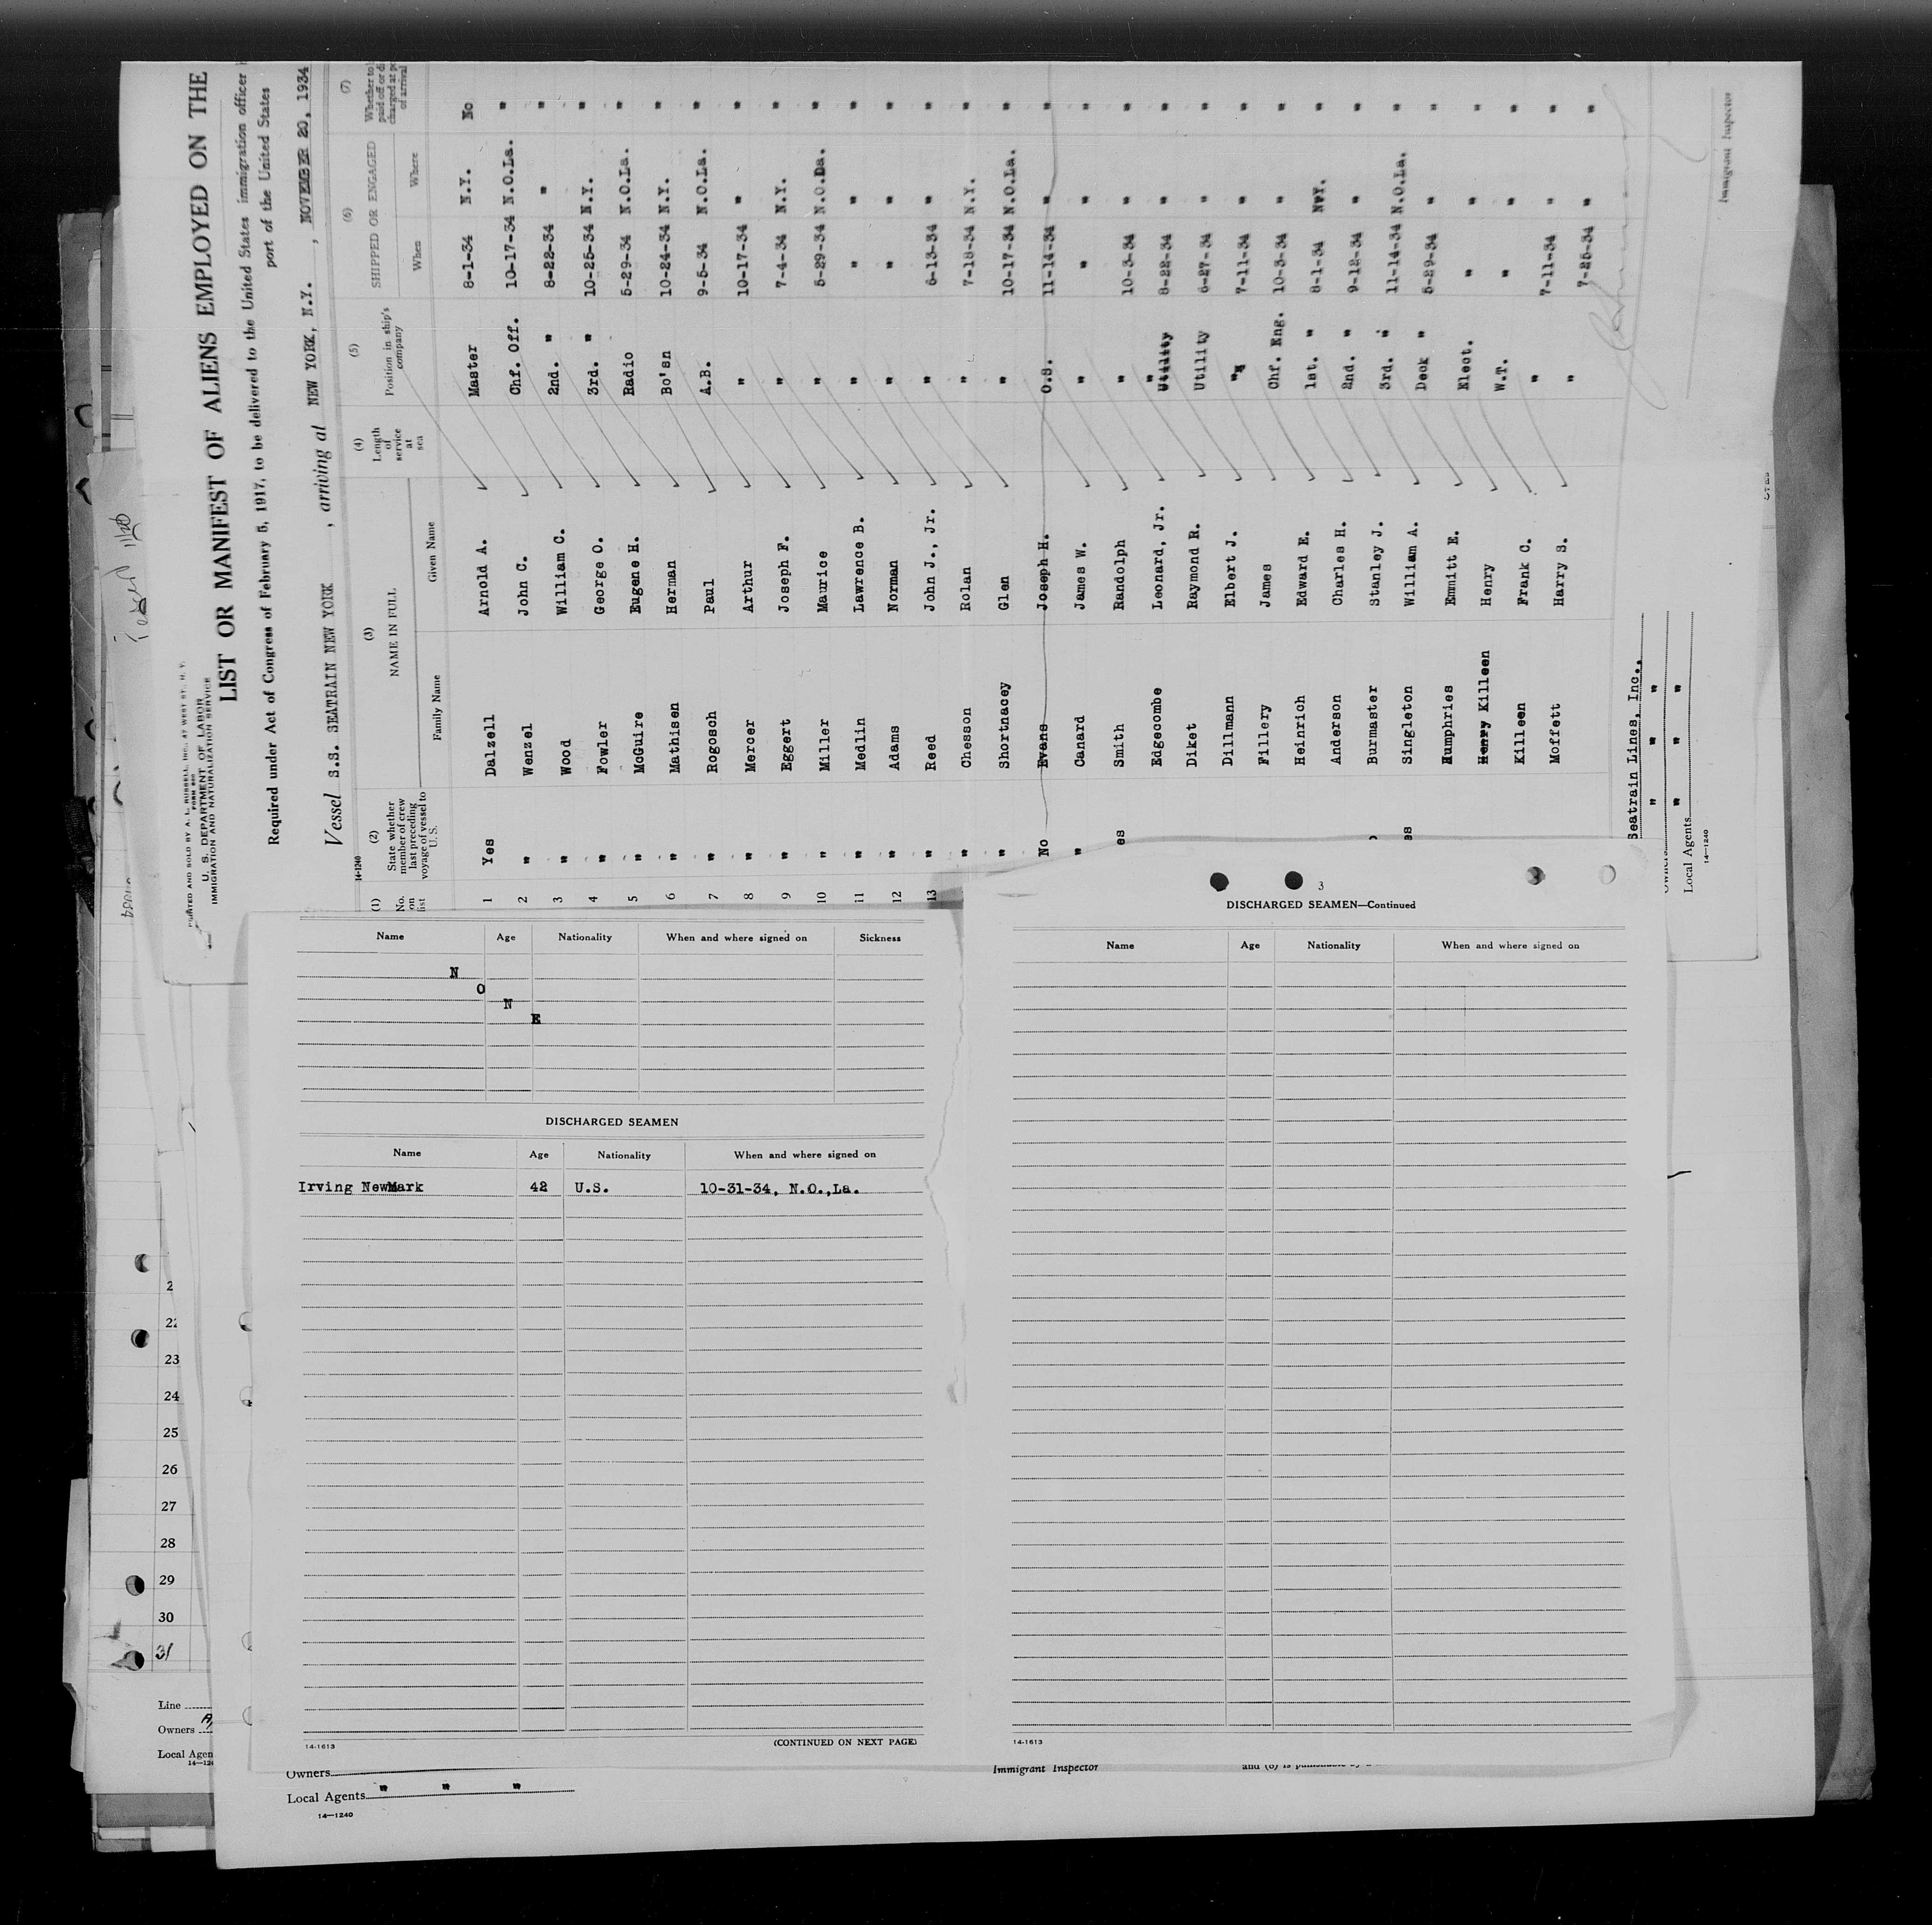 PRINTED AND SOLD BY A. L. RUSSELL, INC., 47 WEST ST., N. Y.
U. S. DEPARTMENT OF LABOR
IMMIGRATION AND NATURALIZATION SERVICE
LIST OR MANIFEST OF ALIENS EMPLOYED ON THE
Required under Act of Congress of February 5, 1917, to be delivered to the United States immigration officer
port of the United States
Vessel S.S. SEATRAIN NEW YORK , arriving at NEW YORK, N.Y. , NOVEMBER 20, 1934
14-1240
(1) (2) (3) (4) (5) (6) (7)
No. on list
State whether member of crew last preceding voyage of vessel to U. S.
NAME IN FULL
Family Name Given Name
Length of service at sea
Position in ship's company
SHIPPED OR ENGAGED
When Where
Whether to
paid off or di
charged at po
of arrival
1 Yes Dalzell Arnold A. Master 8-1-34 N.Y. No
2 " Wenzel John C. Chf. Off. 10-17-34 N.O.La. "
3 " Wood William C. 2nd. " 8-22-34 " "
4 " Fowler George O. 3rd. " 10-25-34 N.Y. "
5 " McGuire Eugene H. Radio 5-29-34 N.O.La. "
6 " Mathisen Herman Bo'sn 10-24-34 N.Y. "
7 " Rogosch Paul A.B. 9-5-34 N.O.La. "
8 " Mercer Arthur " 10-17-34 " "
9 " Eggert Joseph F. " 7-4-34 N.Y. "
10 " Miller Maurice " 5-29-34 N.O.La. "
11 " Medlin Lawrence B. " " " "
12 " Adams Norman " " " "
13 " Reed John J., Jr. " 6-13-34 " "
" Chesson Rolan " 7-18-34 N.Y. "
" Shortnacey Glen " 10-17-34 N.O.La. "
No Evans Joseph H. O.S. 11-14-34 " "
" Canard James W. " " " "
es Smith Randolph " 10-3-34 " "
Edgecombe Leonard, Jr. " Utility 8-22-34 " "
Diket Raymond R. Utility 6-27-34 " "
Dillmann Elbert J. " 7-11-34 " "
Fillery James Chf. Eng. 10-3-34 " "
Heinrich Edward E. 1st. " 8-1-34 N.Y. "
Anderson Charles H. 2nd. " 9-12-34 " "
Burmaster Stanley J. 3rd. " 11-14-34 N.O.La. "
es Singleton William A. Deck " 5-29-34 " "
Humphries Emmitt E. Elect. " " "
Henry Killeen Henry W.T. " " "
Killeen Frank C. " 7-11-34 " "
Moffett Harry S. " 7-25-34 " "
Seatrain Lines, Inc.,
Owners " " "
Local Agents " " "
14-1240
Immigrant Inspector
Name Age Nationality When and where signed on Sickness
N
O
N
E
DISCHARGED SEAMEN
Name Age Nationality When and where signed on
Irving NewMark 42 U.S. 10-31-34, N.O.,La.
14-1613
(CONTINUED ON NEXT PAGE)
3
DISCHARGED SEAMEN—Continued
Name Age Nationality When and where signed on
14-1613
2
22
23
24
25
26
27
28
29
30
31
Line
Owners
Local Agen
Owners
Local Agents " " "
14—1240
Immigrant Inspector